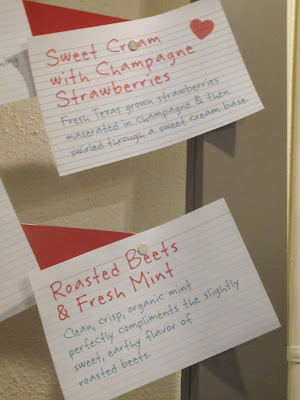 Sweet Cream
with Champagne
Strawberries
Fresh Texas grown strawberries
maserated in champagne & then
swirled through a sweet cream base.
Roasted Beets
& Fresh Mint
Clean, crisp, organic mint
perfectly compliments the slightly
sweet, earthy flavor of
roasted beets.